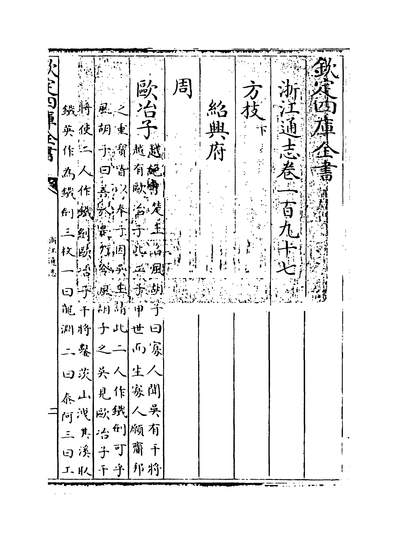 欽定四庫全書
浙江通志卷一百九十七
方技下
紹興府
周
歐冶子越絕書楚王召風胡子曰寡人聞吳有干將
越有歐冶子此二子甲世而生寡人願齎邦
之重寶皆以奉子因吳王請此二人作鐵劍可乎
風胡子曰善於是乃令風胡子之吳見歐冶子干
將使二人作鐵劍歐冶子干將鑿茨山洩其溪取
鐵英作為鐵劍三枚一曰龍淵二曰泰阿三曰工
欽定四庫全書
浙江通志